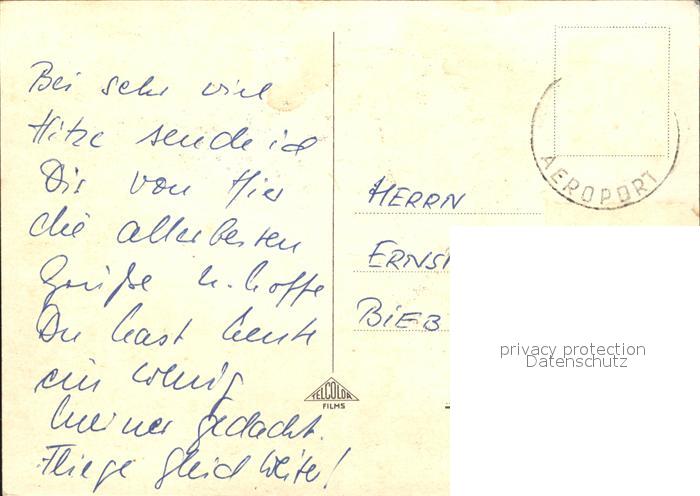 Bei sehr viel
Hitze sende ich
Dir von Hier
die allerbesten
Grüße u. hoffe
Du hast heute
ein wenig
meiner gedacht.
Fliege gleich weiter!
AEROPORT
HERRN
ERNST
BIEB
TELCOLOR
FILMS
privacy protection
Datenschutz